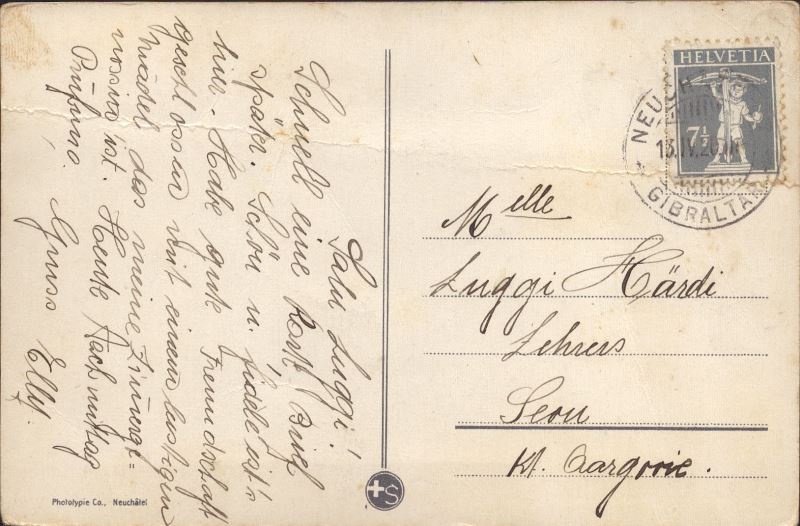 Salu Luggi!
Schnell eine Post Brief
später. Schön u. fidel ist's
hier. Habe gute Freundschaft
geschlossen mit einem lustigen
Mädel das meine Zimmerge=
nossin ist. Heute Nachmittag
Prüfung. Gruss Elly.
HELVETIA
7½
NEUCH
13.IV.20
GIBRALTA
Melle
Luggi Härdi
Lehrers
Seon
Kt. Aargovie.
+S
Phototypie Co., Neuchâtel